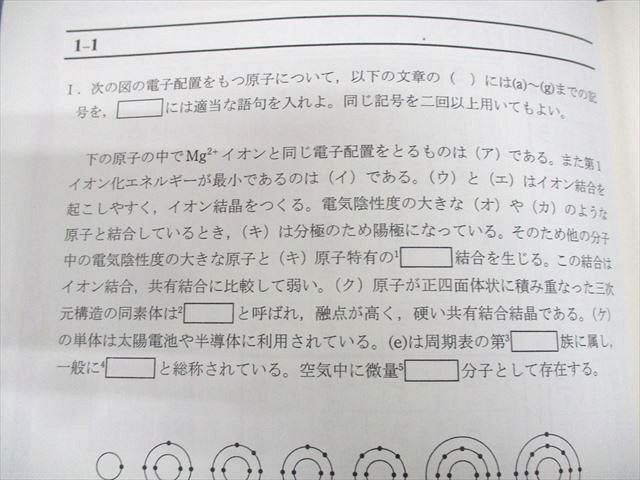 1-1
I．次の図の電子配置をもつ原子について，以下の文章の（　）には(a)～(g)までの記
号を，　　　には適当な語句を入れよ。同じ記号を二回以上用いてもよい。
下の原子の中でMg²⁺イオンと同じ電子配置をとるものは（ア）である。また第1
イオン化エネルギーが最小であるのは（イ）である。（ウ）と（エ）はイオン結合を
起こしやすく，イオン結晶をつくる。電気陰性度の大きな（オ）や（カ）のような
原子と結合しているとき，（キ）は分極のため陽極になっている。そのため他の分子
中の電気陰性度の大きな原子と（キ）原子特有の¹　　　結合を生じる。この結合は
イオン結合，共有結合に比較して弱い。（ク）原子が正四面体状に積み重なった三次
元構造の同素体は²　　　と呼ばれ，融点が高く，硬い共有結合結晶である。（ケ）
の単体は太陽電池や半導体に利用されている。(e)は周期表の第³　　　族に属し，
一般に⁴　　　と総称されている。空気中に微量⁵　　　分子として存在する。